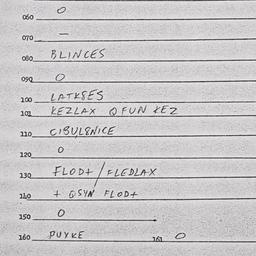 060 O
070 —
080 BLINCES
090 O
100 LATKSES
101 KEZLAX QFUN KEZ
110 CIBULSNICE
120 O
130 FLOD+/FLEDLAX
140 + GSYN FLOD+
150 O
160 PUYKE 161 O